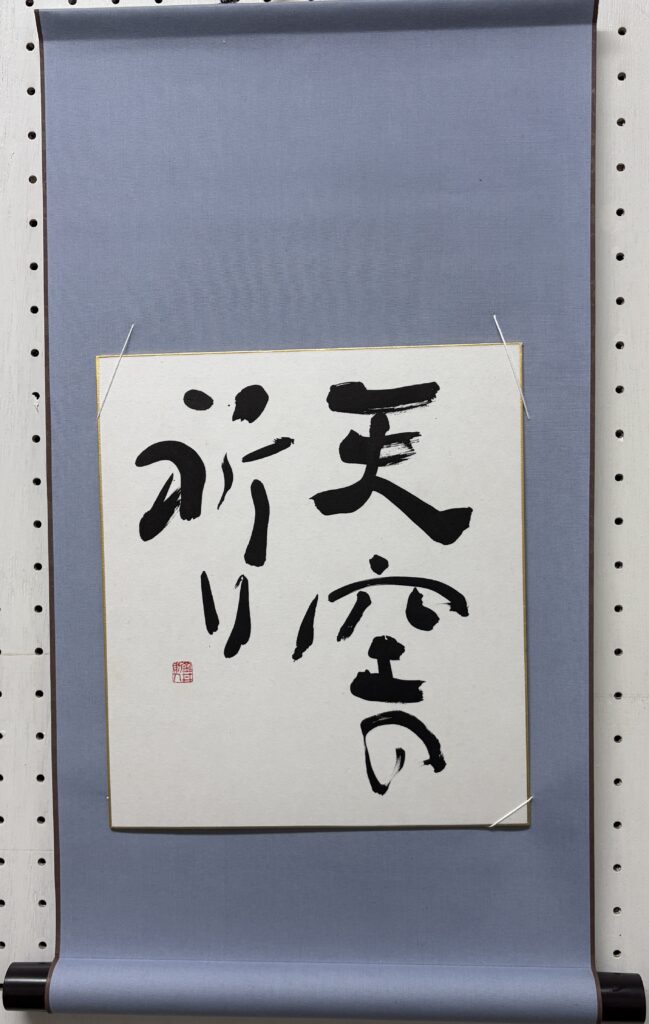 天空の
祈り